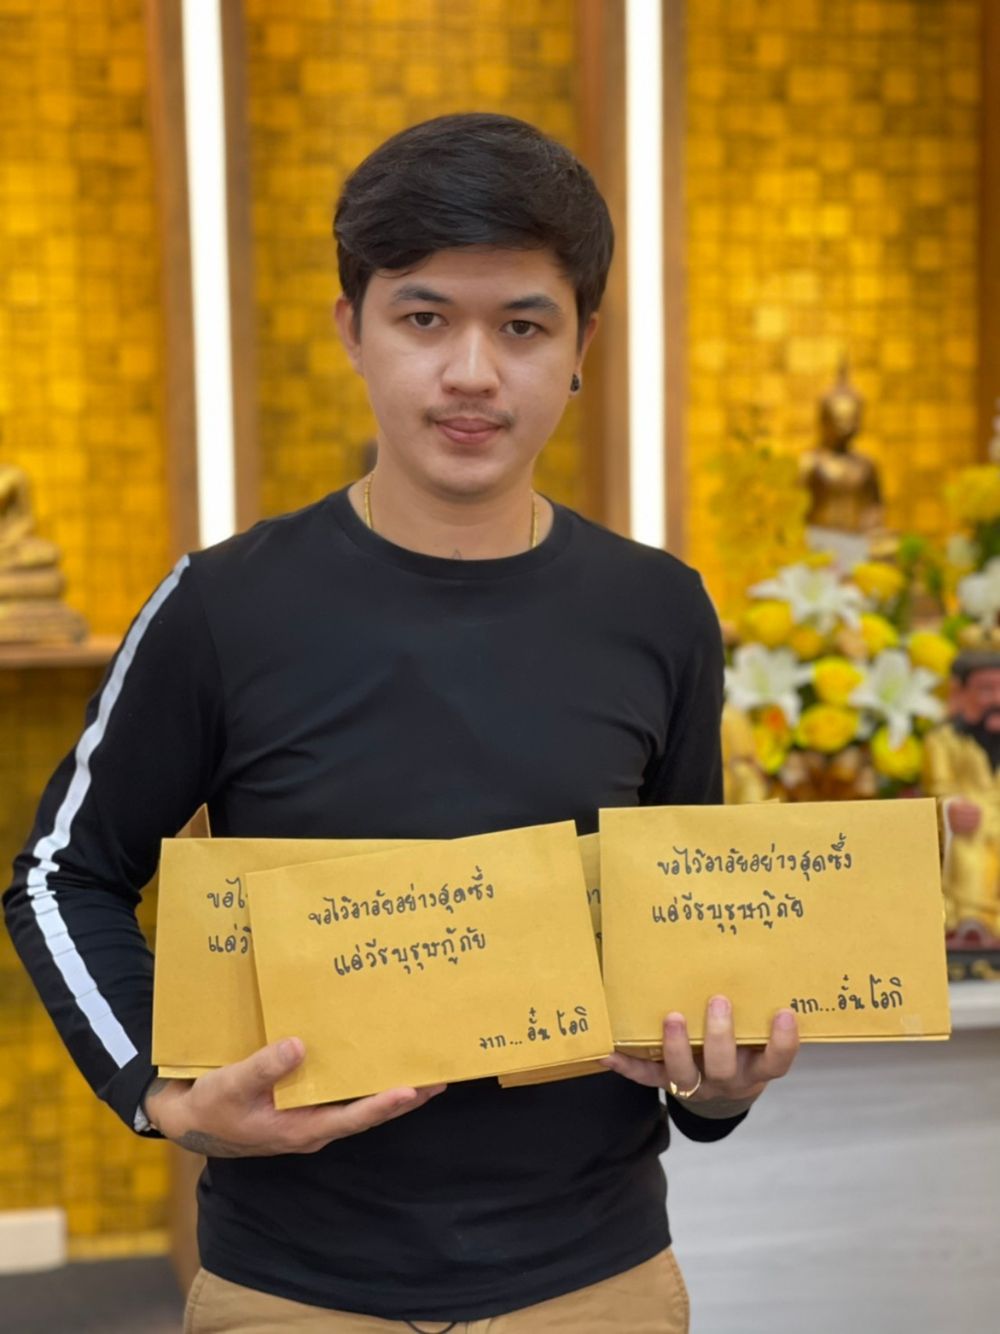 ขอไ
แด่วี
ขอไว้อาลัยอย่างสุดซึ้ง
แด่วีรบุรุษกู้ภัย
จาก... อั๋น โอกิ
ขอไว้อาลัยอย่างสุดซึ้ง
แด่วีรบุรุษกู้ภัย
จาก... อั๋น โอกิ